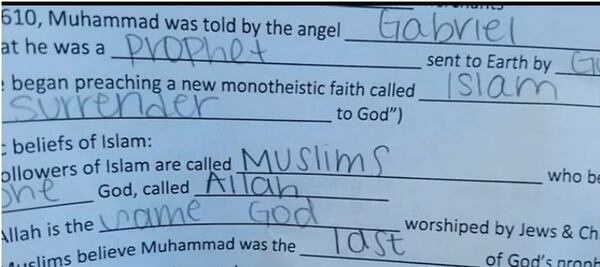 610, Muhammad was told by the angel Gabriel
at he was a prophet sent to Earth by
began preaching a new monotheistic faith called Islam
surrender to God")
beliefs of Islam:
ollowers of Islam are called MUSLIMS who be
one God, called Allah
Allah is the same God worshiped by Jews & Ch
uslims believe Muhammad was the last of God's proph